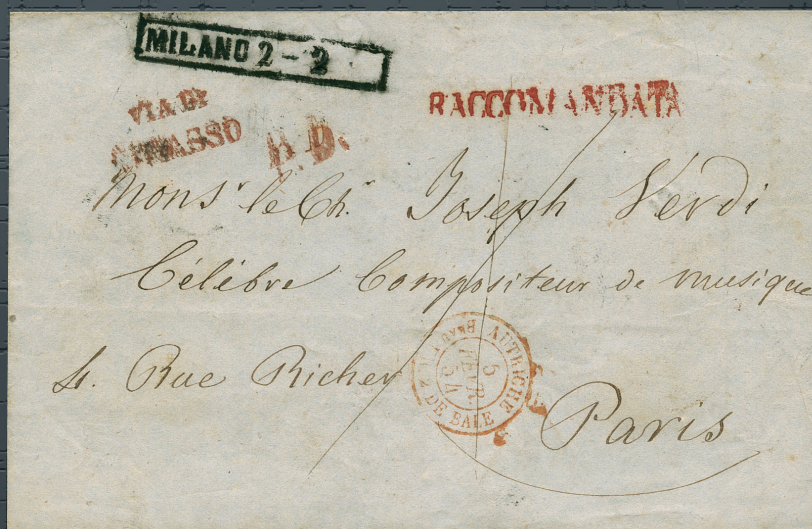 MILANO 2 - 2
RACCOMANDATA
VIA DI
P. D.
Monsr le Chr Joseph Verdi
Célébre Compositeur de musique
4. Rue Richer
AUTRICHE
5
FEVR.
54
DE BALE
Paris